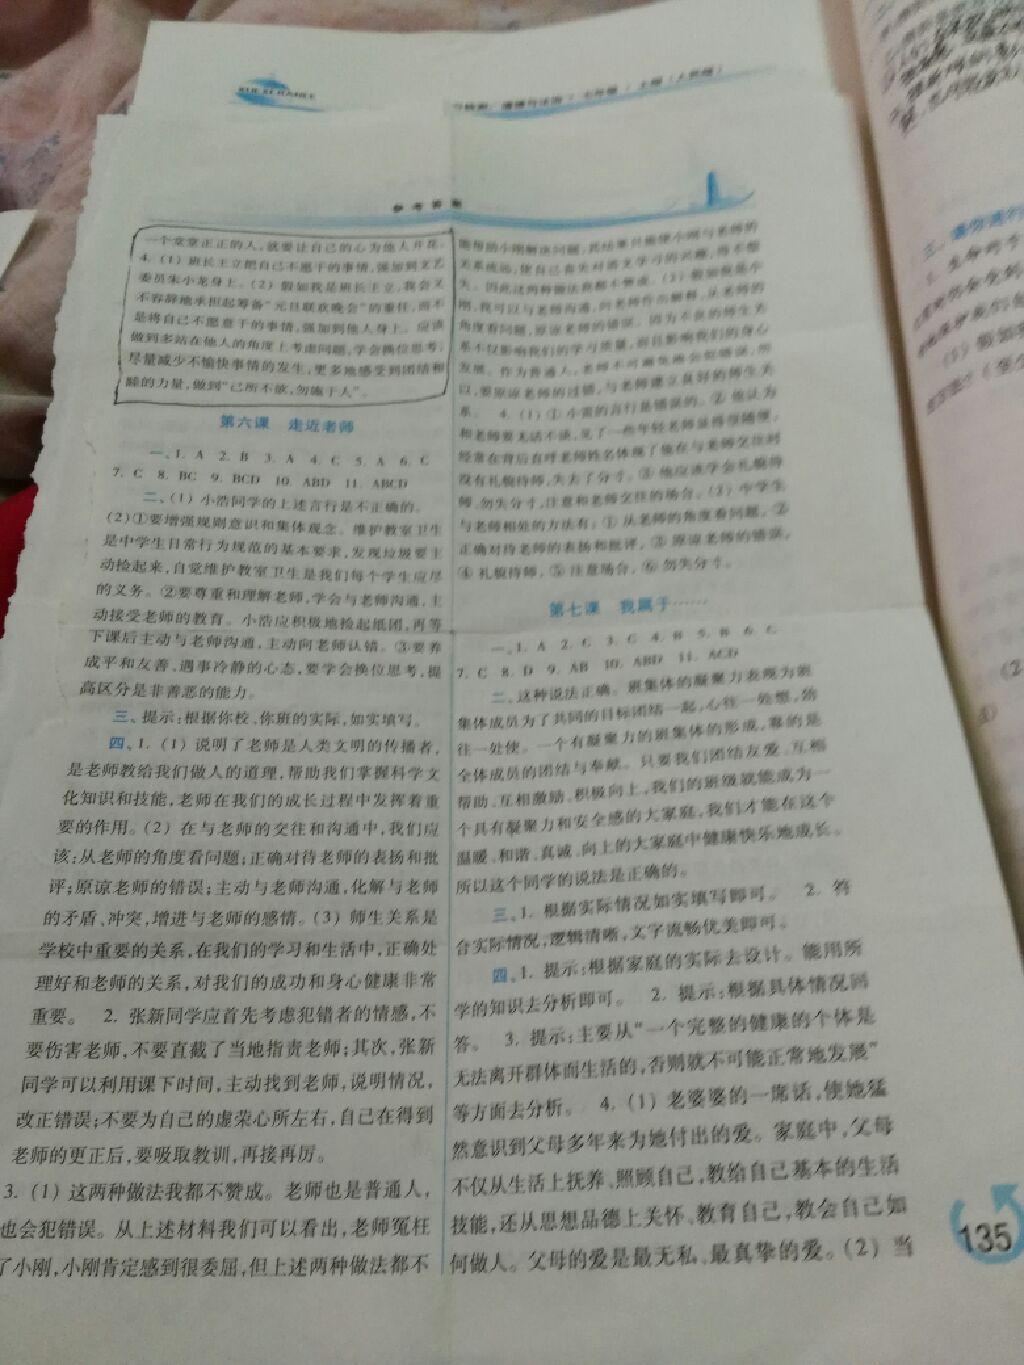 参考答案
一个堂堂正正的人,就要让自己的心为他人开花。
4. (1) 班长王立把自己不愿干的事情,强加到文艺
委员朱小龙身上。(2) 假如我是班长王立,我会义
不容辞地承担起筹备“元旦联欢晚会”的重任,而不
是将自己不愿意干的事情,强加到他人身上。应该
做到多站在他人的角度上考虑问题,学会换位思考,
尽量减少不愉快事情的发生,更多地感受到团结和
睦的力量,做到“己所不欲,勿施于人”。
第六课 走近老师
一、1. A 2. B 3. A 4. C 5. A 6. C
7. C 8. BC 9. BCD 10. ABD 11. ABCD
二、(1) 小浩同学的上述言行是不正确的。
(2)①要增强规则意识和集体观念。维护教室卫生
是中学生日常行为规范的基本要求,发现垃圾要主
动捡起来,自觉维护教室卫生是我们每个学生应尽
的义务。②要尊重和理解老师,学会与老师沟通,主
动接受老师的教育。小浩应积极地捡起纸团,再等
下课后主动与老师沟通,主动向老师认错。③要养
成平和友善、遇事冷静的心态,要学会换位思考,提
高区分是非善恶的能力。
三、提示:根据你校、你班的实际,如实填写。
四、1. (1) 说明了老师是人类文明的传播者,
是老师教给我们做人的道理,帮助我们掌握科学文
化知识和技能,老师在我们的成长过程中发挥着重
要的作用。(2) 在与老师的交往和沟通中,我们应
该:从老师的角度看问题;正确对待老师的表扬和批
评;原谅老师的错误;主动与老师沟通,化解与老师
的矛盾、冲突,增进与老师的感情。(3) 师生关系是
学校中重要的关系,在我们的学习和生活中,正确处
理好和老师的关系,对我们的成功和身心健康非常
重要。 2. 张新同学应首先考虑犯错者的情感,不
要伤害老师,不要直截了当地指责老师;其次,张新
同学可以利用课下时间,主动找到老师,说明情况,
改正错误;不要为自己的虚荣心所左右,自己在得到
老师的更正后,要吸取教训,再接再厉。
3. (1) 这两种做法我都不赞成。老师也是普通人,
也会犯错误。从上述材料我们可以看出,老师冤枉
了小刚,小刚肯定感到很委屈,但上述两种做法都不
能帮助小刚解决问题,其结果只能使小刚与老师的
关系疏远,使自己丧失对语文学习的兴趣,得不偿
失。因此这两种做法我都不赞成。(2) 假如我是小
刚,我可以与老师沟通,向老师作出解释,从老师的
角度看问题,原谅老师的错误。因为不良的师生关
系不仅影响我们的学习质量,而且影响我们的身心
发展。作为普通人,老师不可避免地会犯错误,所
以,要原谅老师的过错,与老师建立良好的师生关
系。 4. (1) ① 小雷的言行是错误的。② 他认为
和老师要无话不谈,见了一些年轻老师显得很随便,
经常在背后直呼老师姓名体现了他在与老师交往时
没有礼貌待师,失去了分寸。③ 他应该学会礼貌待
师,勿失分寸,注意和老师交往的场合。(2) 中学生
与老师相处的方法有:① 从老师的角度看问题,②
正确对待老师的表扬和批评,③ 原谅老师的错误,
④ 礼貌待师,⑤ 注意场合,⑥ 勿失分寸。
第七课 我属于……
一、1. A 2. C 3. C 4. B 5. B 6. C
7. C 8. D 9. AB 10. ABD 11. ACD
二、这种说法正确。班集体的凝聚力表现为班
集体成员为了共同的目标团结一起,心往一处想,劲
往一处使。一个有凝聚力的班集体的形成,靠的是
全体成员的团结与奉献。只要我们团结友爱、互相
帮助、互相激励、积极向上,我们的班级就能成为一
个具有凝聚力和安全感的大家庭,我们才能在这个
温暖、和谐、真诚、向上的大家庭中健康快乐地成长。
所以这个同学的说法是正确的。
三、1. 根据实际情况如实填写即可。 2. 符
合实际情况,逻辑清晰,文字流畅优美即可。
四、1. 提示:根据家庭的实际去设计。能用所
学的知识去分析即可。 2. 提示:根据具体情况回
答。 3. 提示:主要从“一个完整的健康的个体是
无法离开群体而生活的,否则就不可能正常地发展”
等方面去分析。 4. (1) 老婆婆的一席话,使她猛
然意识到父母多年来为她付出的爱。家庭中,父母
不仅从生活上抚养、照顾自己,教给自己基本的生活
技能,还从思想品德上关怀、教育自己,教会自己如
何做人。父母的爱是最无私、最真挚的爱。(2) 当
135